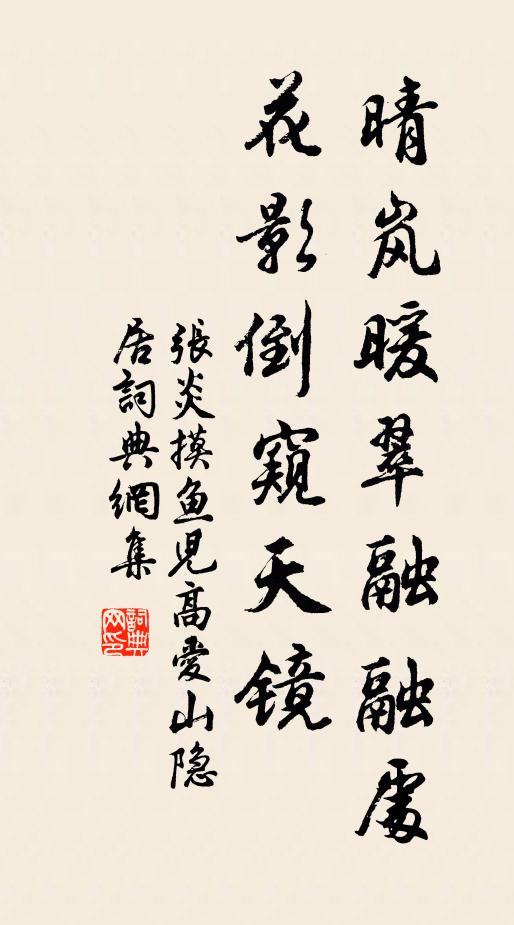 晴岚暖翠融融處
花影倒窺天镜
張炎摸鱼児高愛山隐
居詞典網集
詞典
网印